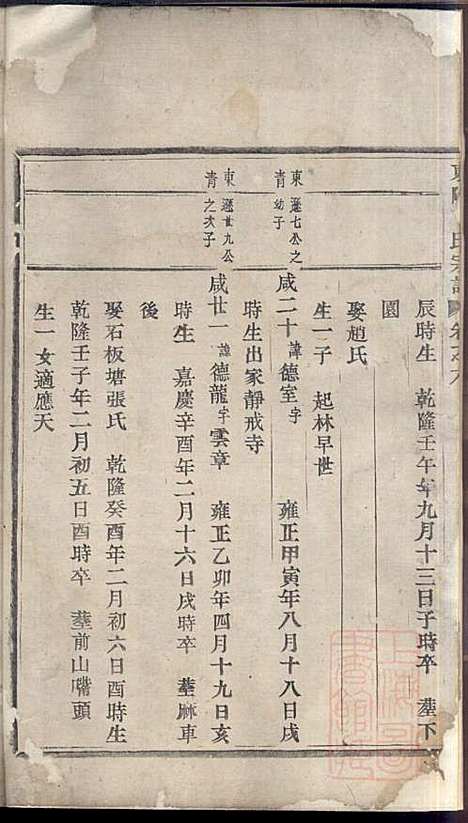 氏宗譜
辰時生 乾隆壬午年九月十三日子時卒 塟下
園
娶趙氏
生一子 起林早世
東青 遜七公之幼子
咸二十 諱德室字 雍正甲寅年八月十八日戌
時生出家靜戒寺
東青 遜廿九公之次子
咸廿一 諱德龍字雲章 雍正乙卯年四月十九日亥
時生 嘉慶辛酉年二月十六日戌時卒 塟麻車
後
娶石板塘張氏 乾隆癸酉年二月初六日酉時生
乾隆壬子年二月初五日酉時卒 塟前山嘴頭
生一女適應天